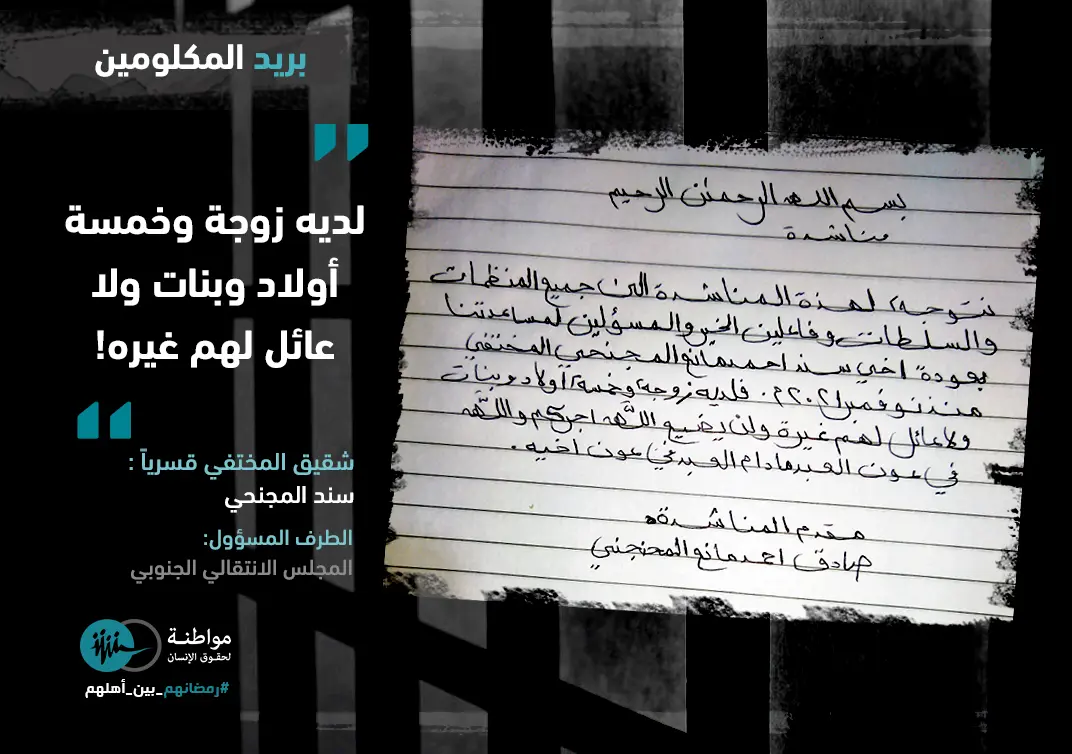 بريد المكلومين
لديه زوجة وخمسة
أولاد وبنات ولا
عائل لهم غيره!
شقيق المختفي قسرياً :
سند المجنحي
الطرف المسؤول:
المجلس الانتقالي الجنوبي
مواطنـة
لحقـوق الإنسان
#رمضانهم_بين_أهلهم
بسم الله الرحمٰن الرحيم
مناشدة
نتوجه، لهذة المناشدة الى جميع المنظمات
والسلطات وفاعلين الخير والمسؤلين لمساعدتنا
بعودة اخي سند احمد مانع المجنحي المختفي
منذ نوفمبر ٢٠٢١م. فلديه زوجه وخمسة اولاد وبنات
ولا عائل لهم غيرة ولن يضيع اللّه اجركم واللّه
في عون العبد مادام العبد في عون اخيه.
مقدم المناشدة
صادق احمد مانع المجنحي